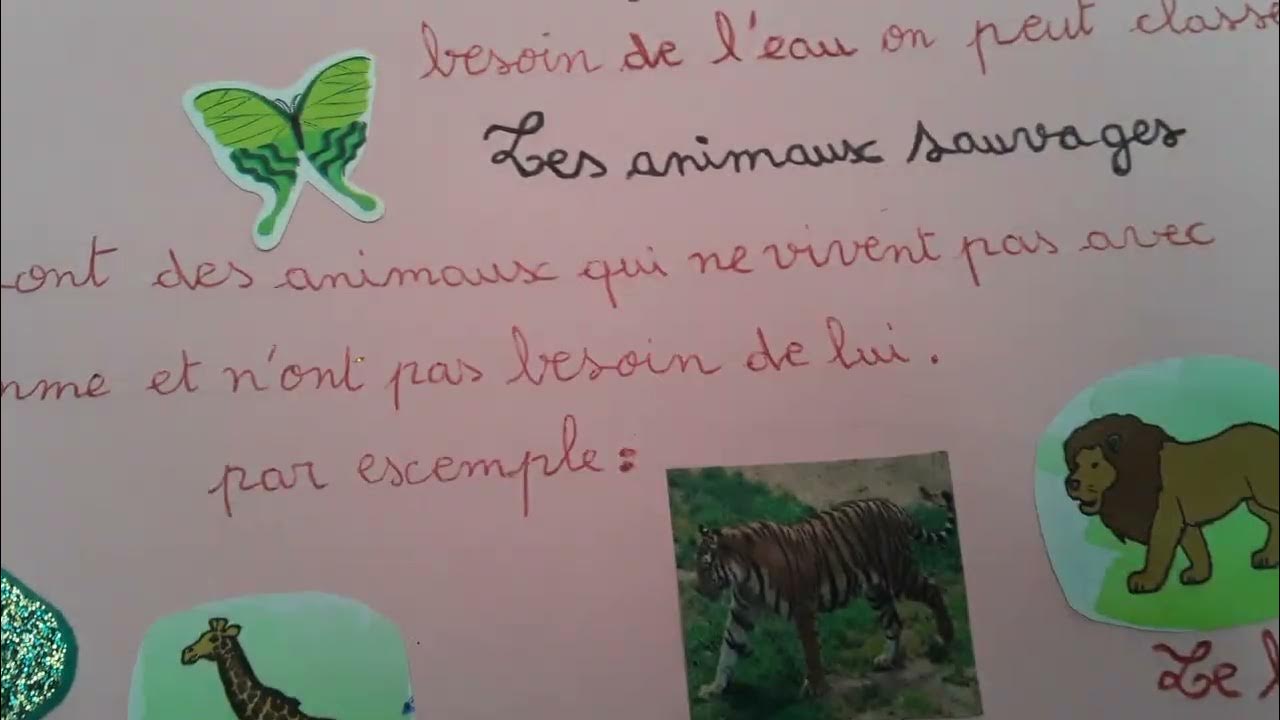 besoin de l'eau on peut classe
Les animaux sauvages
ont des animaux qui ne vivent pas avec
mme et n'ont pas besoin de lui.
par escemple:
Le l